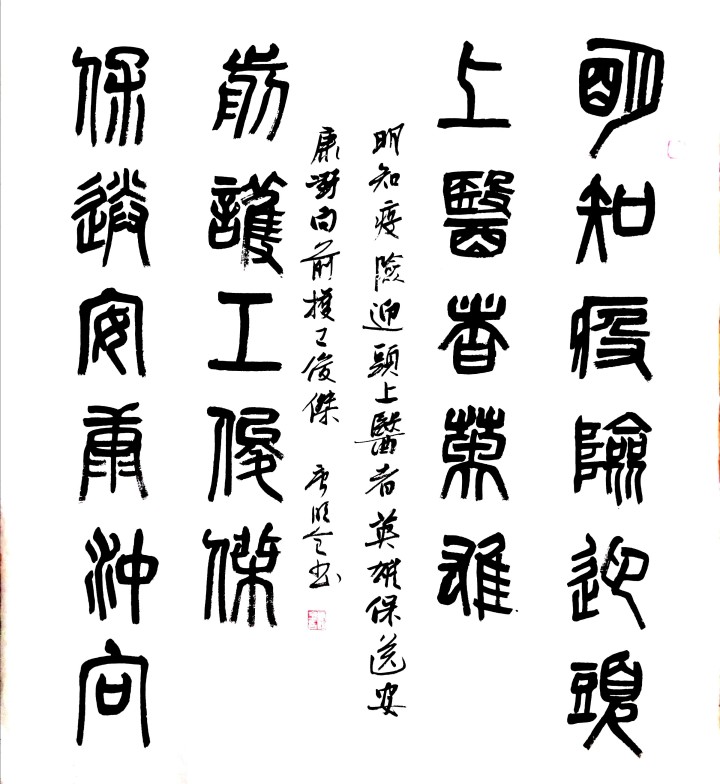 明知疫險迎頭
上醫者英雄
保送安康沖向
前護工俊傑
明知疫險迎頭上醫者英雄保送安
康衝向前護工俊傑 書